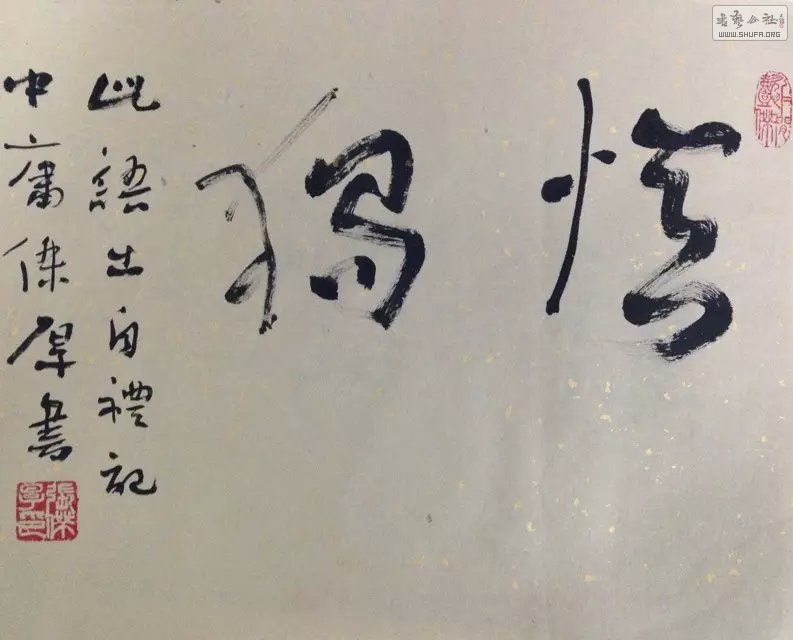 慎獨
此語出自禮記
中庸傑厚書
WWW.SHUFA.ORG